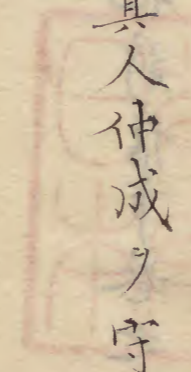 真人仲成ヲ守